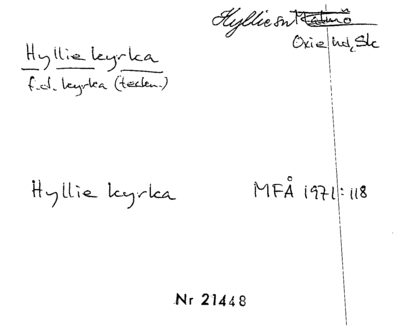 Hyllie sn
Oxie hd, Sk
Hyllie kyrka
f.d. kyrka (teckn.)
Hyllie kyrka MFÅ 1971:118
Nr 21448